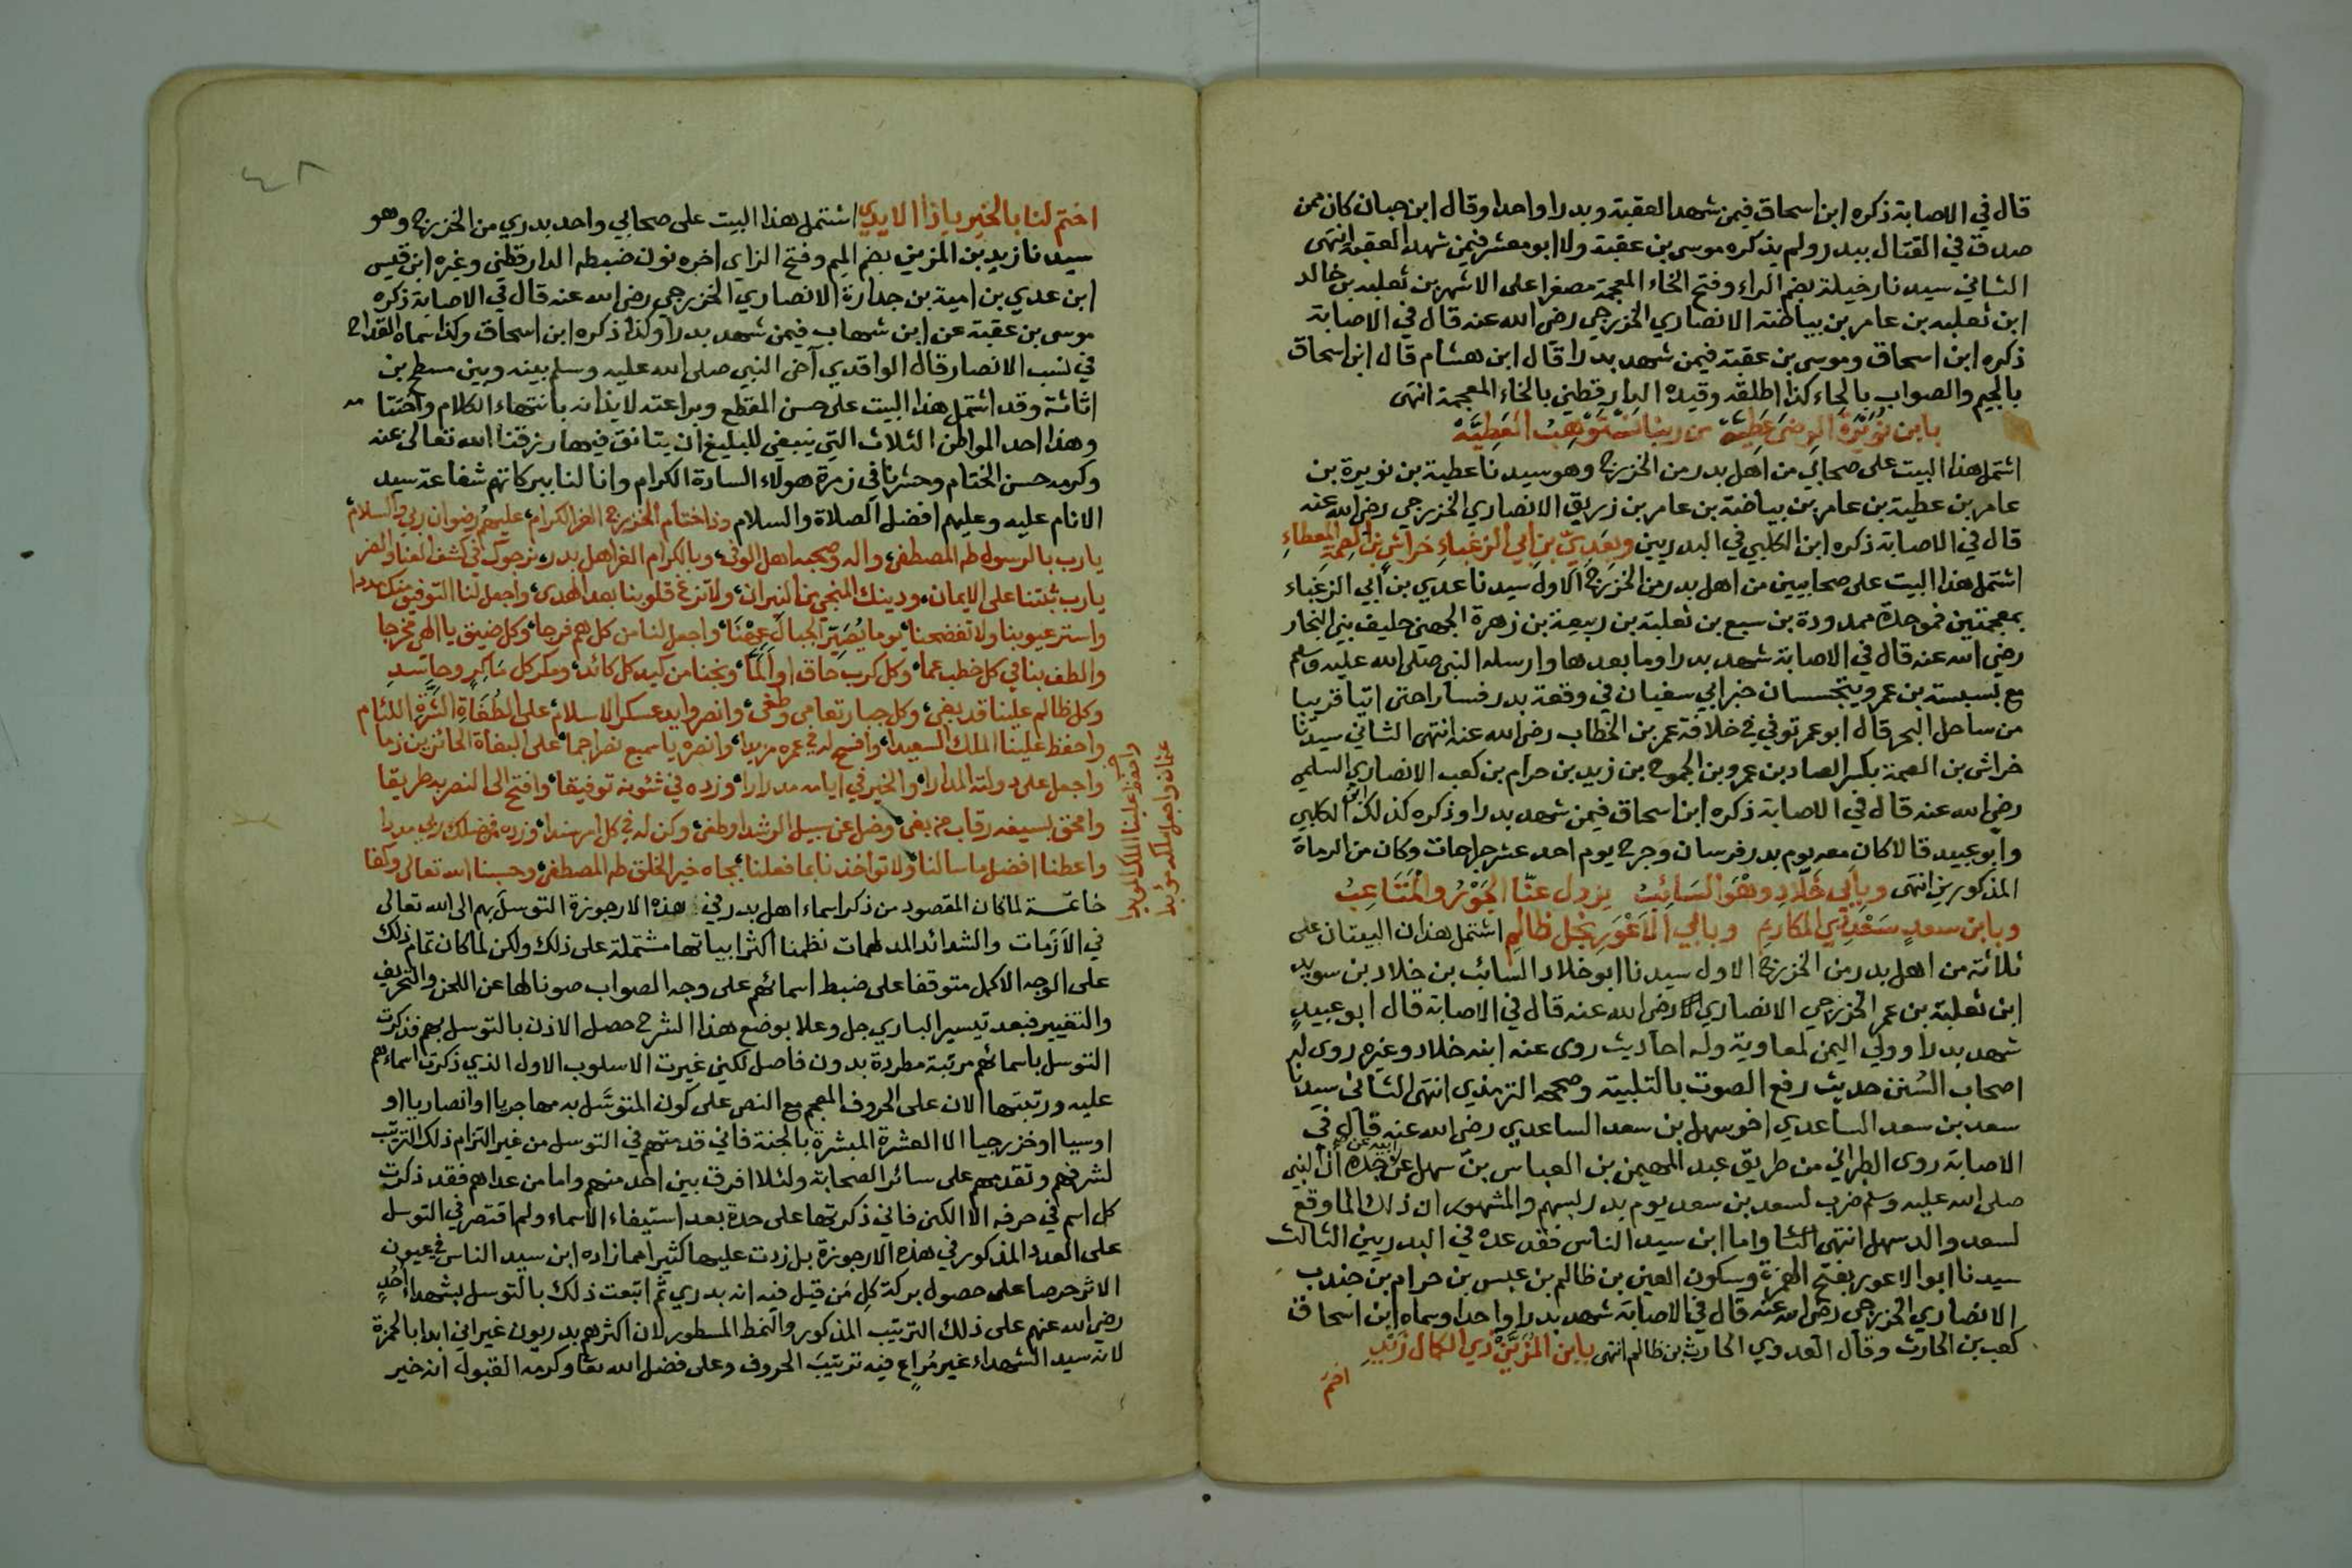 قال في الاصابة ذكره ابن اسحاق فيمن شهد العقبة وبدرا واحدا وقال ابن حبان كان ممن
صدق في القتال ببدر ولم يذكره موسى بن عقبة ولا ابو معشر فيمن شهد العقبة انتهى
الثاني سيدنا رخيلة بضم الراء وفتح الخاء المعجمة مصغرا على الاشهر بن ثعلبه بن خالد
ابن ثعلبه بن عامر بن بياضة الانصاري الخزرجي رضي الله عنه قال في الاصابة
ذكره ابن اسحاق وموسى بن عقبة فيمن شهد بدرا قال ابن هشام قال ابن اسحاق
بالجيم والصواب بالحاء كذا اطلقه وقيده الدارقطني بالخاء المعجمة انتهى
بابن نويرة الرضى عطية من ربنا نستوهب العطية
اشتمل هذا البيت على صحابي من اهل بدر من الخزرج وهو سيدنا عطية بن نويرة بن
عامر بن عطية بن عامر بن بياضة بن عامر بن زريق الانصاري الخزرجي رضي الله عنه
قال في الاصابة ذكره ابن الكلبي في البدريين وبعدي بن ابي الزغباء خراش بن الصمة المعطاء
اشتمل هذا البيت على صحابيين من اهل بدر من الخزرج الاول سيدنا عدي بن ابي الزغباء
بمعجمتين فموحدة ممدودة بن سبع بن ثعلبة بن ربيعة بن زهرة الجهني حليف بني النجار
رضي الله عنه قال في الاصابة شهد بدرا وما بعدها وارسله النبي صلى الله عليه وسلم
مع بسبسة بن عمرو يتجسسان خبر ابي سفيان في وقعة بدر فسارا حتى اتيا قريبا
من ساحل البحر قال ابو عمر توفي في خلافة عمر بن الخطاب رضي الله عنه انتهى الثاني سيدنا
خراش بن الصمة بكسر الصاد بن عمرو بن الجموح بن زيد بن حرام بن كعب الانصاري السلمي
رضي الله عنه قال في الاصابة ذكره ابن اسحاق فيمن شهد بدرا وذكره كذلك ابن الكلبي
وابو عبيد قالا كان معه يوم بدر فرسان وجرح يوم احد عشر جراحات وكان من الرماة
المذكورين انتهى وبابي خلاد وهو السائب يزول عنا الجور والمتاعب
وبابن سعد سعد ذي المكارم وبابي الاعور نجل ظالم اشتمل هذان البيتان على
ثلاثة من اهل بدر من الخزرج الاول سيدنا ابو خلاد السائب بن خلاد بن سويد
ابن ثعلبة بن عمر الخزرجي الانصاري رضي الله عنه قال في الاصابة قال ابو عبيد
شهد بدرا وولي اليمن لمعاوية وله احاديث روى عنه ابنه خلاد وغيره روى له
اصحاب السنن حديث رفع الصوت بالتلبية وصححه الترمذي انتهى الثاني سيدنا
سعد بن سعد الساعدي اخو سهل بن سعد الساعدي رضي الله عنه قال في
الاصابة روى الطبراني من طريق عبد المهيمن بن العباس بن سهل عن ابيه عن جده ان النبي
صلى الله عليه وسلم ضرب لسعد بن سعد يوم بدر بسهم والمشهور ان ذلك انما وقع
لسعد والد سهل انتهى واما ابن سيد الناس فقد عده في البدريين الثالث
سيدنا ابو الاعور بفتح الهمزة وسكون العين بن ظالم بن عبس بن حرام بن جندب
الانصاري الخزرجي رضي الله عنه قال في الاصابة شهد بدرا واحدا وسماه ابن اسحاق
كعب بن الحارث وقال العدوي الحارث بن ظالم انتهى بابن المزين ذي الكمال زيد
اختم
٤٨
اختم لنا بالخير يا ذا الايدي اشتمل هذا البيت على صحابي واحد بدري من الخزرج وهو
سيدنا زيد بن المزين بضم الميم وفتح الزاى اخره نون ضبطه الدارقطني وغيره ابن قيس
ابن عدي بن امية بن جدارة الانصاري الخزرجي رضي الله عنه قال في الاصابة ذكره
موسى بن عقبة عن ابن شهاب فيمن شهد بدرا وكذا ذكره ابن اسحاق وكذا سماه القداح
في نسب الانصار قال الواقدي آخى النبي صلى الله عليه وسلم بينه وبين مسطح بن
اثاثة وقد اشتمل هذا البيت على حسن المقطع وبراعته لايذانه بانتهاء الكلام واختتامه
وهذا احد المواطن الثلاث التي ينبغي للبليغ ان يتانق فيها رزقنا الله تعالى بمنه
وكرمه حسن الختام وحشرنا في زمرة هولاء السادة الكرام وانا لنا ببركاتهم شفاعة سيد
الانام عليه وعليهم افضل الصلاة والسلام وذا ختام الخزرج الغر الكرام، عليهم رضوان ربي والسلام
يارب بالرسول طه المصطفى، واله وصحبه اهل الوفى، وبالكرام الغر اهل بدر، نرجوك في كشف العنا والضر
يارب ثبتنا على الايمان، ودينك المنجي من النيران، ولا تزغ قلوبنا بعد الهدى، واجعل لنا التوفيق منك مددا
واستر عيوبنا ولا تفضحنا، يوما يصير الجبال عهنا، واجعل لنا من كل هم فرجا، وكل ضيق يا الهي مخرجا
والطف بنا في كل خطب عما، وكل كرب حاق او الما، ونجنا من كيد كل كائد، ومكر كل ماكر وحاسد
وكل ظالم علينا قد بغى، وكل جبار تعامى وطغى، وانصر وايد عسكر الاسلام، على الطغاة الشرة اللئام
واحفظ علينا الملك السعيدا، وافسح له في عمره مزيدا، وانصره يا سميع نصرا جما، على البغاة الحائزين ذما
واجعل على دولته المدارا، والخير في ايامه مدرارا، وزده في شئونه توفيقا، وافتح الى النصر به طريقا
وامحق بسيفه رقاب من بغى، وضل عن سبيل الرشد وطغى، وكن له في كل امر سندا، وزده من فضلك ربي مددا
واعطنا افضل ما سالنا، ولا تواخذنا بما فعلنا، بجاه خير الخلق طه المصطفى، وحسبنا الله تعالى وكفا
خاتمة لما كان المقصود من ذكر اسماء اهل بدر في هذه الارجوزة التوسل بهم الى الله تعالى
في الازمات والشدائد المدلهمات نظمنا اكثر ابياتها مشتملة على ذلك ولكن لما كان تمام ذلك
على الوجه الاكمل متوقفا على ضبط اسمائهم على وجه الصواب صونا لها عن اللحن والتحريف
والتغيير فبعد تيسير الباري جل وعلا بوضع هذا الشرح حصل الاذن بالتوسل بهم فذكرت
التوسل باسمائهم مرتبة مطردة بدون فاصل لكني غيرت الاسلوب الاول الذي ذكرت اسماءهم
عليه ورتبتها الان على الحروف المعجم مع النص على كون المتوسل به مهاجريا او انصاريا او
اوسيا او خزرجيا الا العشرة المبشرة بالجنة فاني قدمتهم في التوسل من غير التزام ذلك الترتيب
لشرفهم وتقدمهم على سائر الصحابة ولئلا افرق بين احد منهم واما من عداهم فقد ذكرت
كل اسم في حرفه الا الكنى فاني ذكرتها على حدة بعد استيفاء الاسماء ولم اقتصر في التوسل
على العدد المذكور في هذه الارجوزة بل زدت عليها كثيرا مما زاده ابن سيد الناس في عيون
الاثر حرصا على حصول بركة كل من قيل فيه انه بدري ثم اتبعت ذلك بالتوسل بشهداء احد
رضي الله عنهم على ذلك الترتيب المذكور والنمط المسطور لان اكثرهم بدريون غير اني ابدا بالحمزة
لانه سيد الشهداء غير مراع فيه ترتيب الحروف وعلى فضل الله تعا وكرمه القبول انه خير
واحفظ علينا الملك
عثمان واجعل ملكه مؤبدا